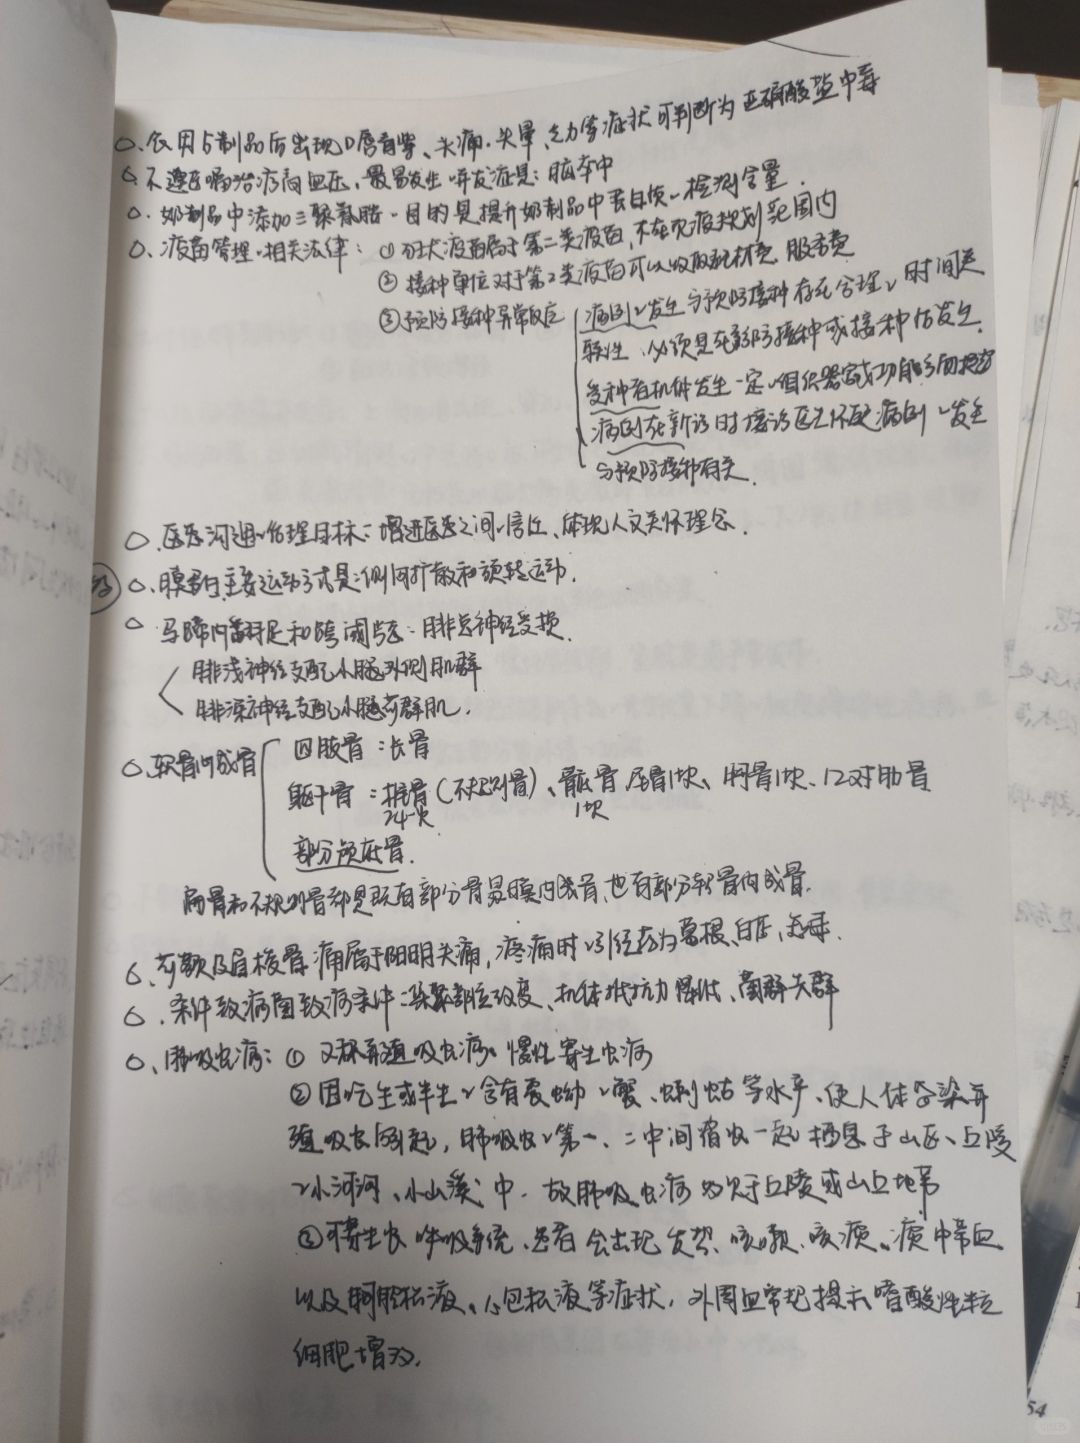 食用奶制品后出现口唇青紫、头痛、头晕、乏力等症状可判断为亚硝酸盐中毒
不遵医嘱治疗高血压,最易发生并发症是:脑卒中
奶制品中添加三聚氰胺、目的是提升奶制品中蛋白质、检测含量.
疫苗管理、相关法律:①
疫苗属于第二类疫苗,不在免疫规划范围内
②接种单位对于第2类疫苗可以收取耗材费、服务费
③预防接种异常反应
病例、发生与预防接种存在合理、时间关
联性、必须是在预防接种或接种后发生.
受种者机体发生一定、组织器官或功能
病例在新诊时接诊医生怀疑病例、发生
与预防接种有关.
医患沟通、伦理目标:增进医患之间、信任、体现人文关怀理念.
膜蛋白主要运动方式是:侧向扩散和旋转运动.
马蹄内翻足和跨阈步态:腓总神经受损.
腓浅神经支配小腿外侧肌群
腓深神经支配小腿前群肌.
软骨内成骨
四肢骨:长骨
躯干骨:椎骨(不规则骨)、骶骨 尾骨1块、胸骨1块、12对肋骨
24块 1块
部分颅底骨.
扁骨和不规则骨都是既有部分骨是膜内成骨,也有部分软骨内成骨.
前额及眉棱骨痛属于阳明头痛,疼痛时、引经药为葛根、白芷、知母.
条件致病菌致病条件:寄居部位改变、机体抵抗力降低、菌群失群
肺吸虫病:①又称并殖吸虫病、慢性寄生虫病
②因吃生或半生、含有囊蚴、蟹、蝲蛄等水产、使人体感染并
殖吸虫引起,肺吸虫、第一、二中间宿主一起栖息于山区、丘陵
、小河沟、小山溪中、故肺吸虫病 于丘陵或山丘地带
③可寄生于呼吸系统、患者会出现发热、咳嗽、咳痰、痰中带血
以及胸腔积液、心包积液等症状,外周血常规提示嗜酸性粒
细胞增多.
54